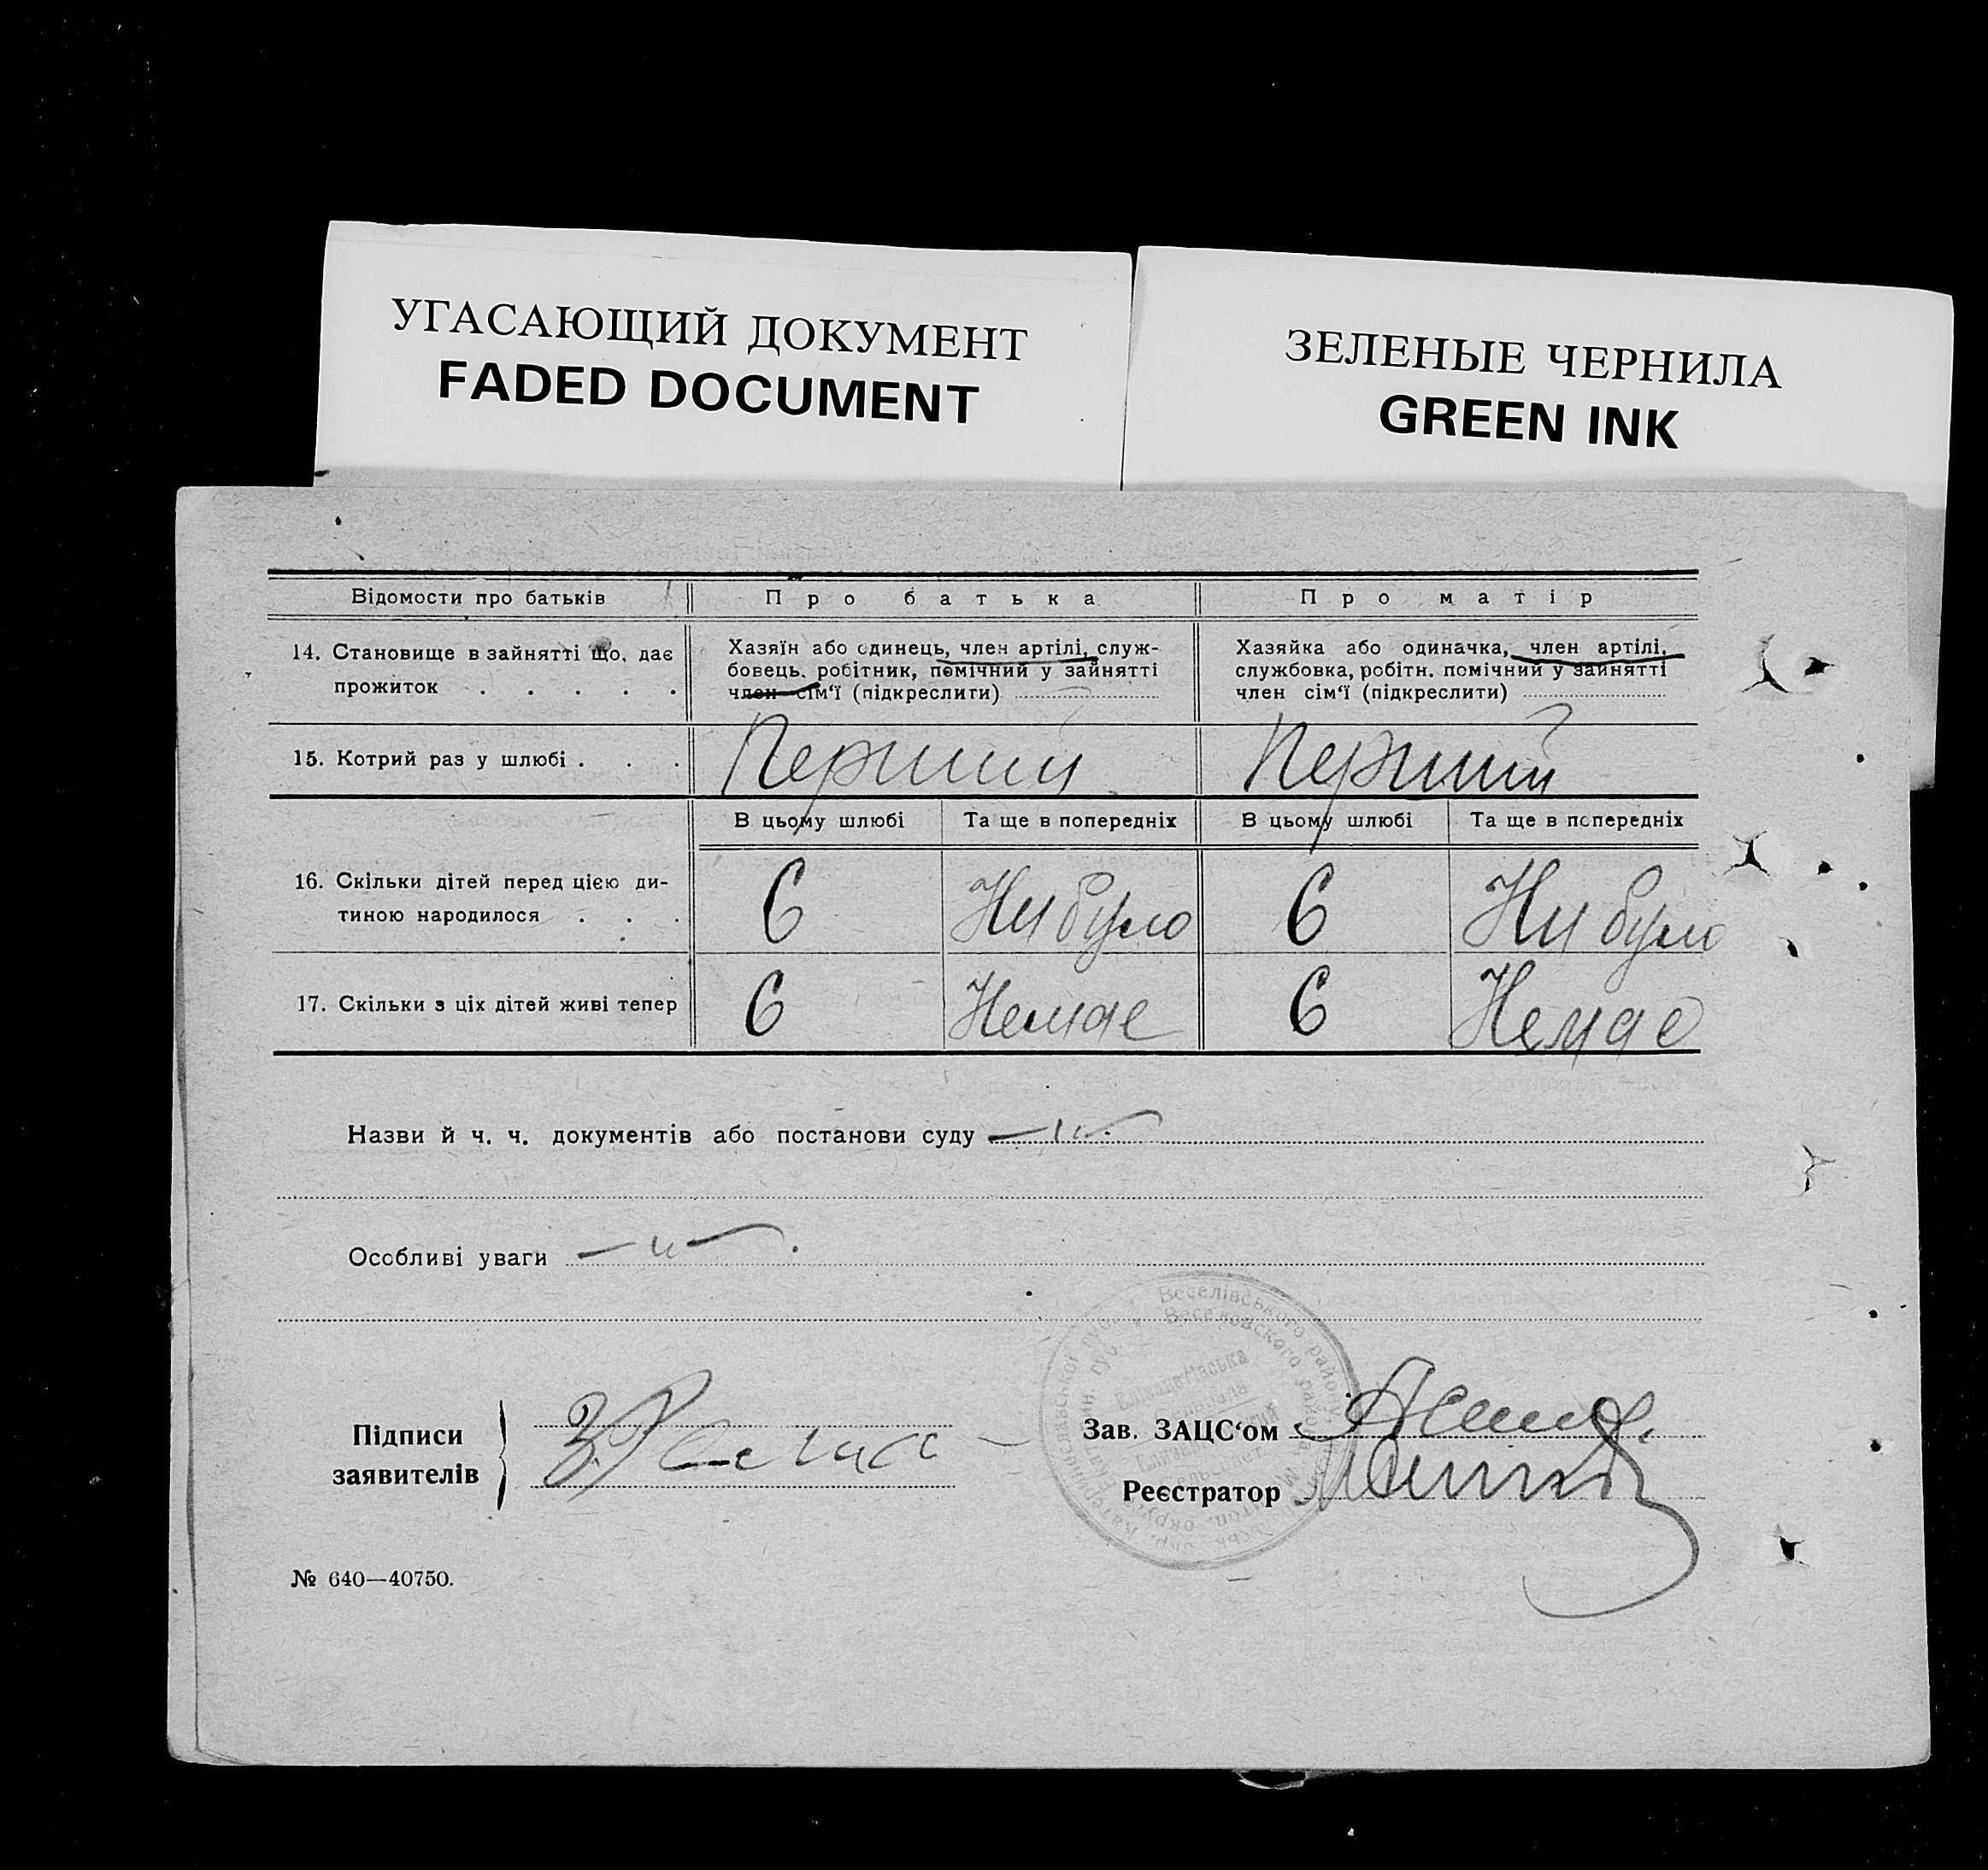 УГАСАЮЩИЙ ДОКУМЕНТ
FADED DOCUMENT
ЗЕЛЕНЫЕ ЧЕРНИЛА
GREEN INK
Відомости про батьків
Про батька
Про матір
14. Становище в зайнятті що, дає
прожиток . . . . .
Хазяїн або одинець, член артілі, служ-
бовець, робітник, помічний у зайнятті
член сім‘ї (підкреслити)
Хазяйка або одиначка, член артілі,
службовка, робітн. помічний у зайнятті
член сім‘ї (підкреслити)
15. Котрий раз у шлюбі . . .
Перший
Перший
В цьому шлюбі
Та ще в попередніх
В цьому шлюбі
Та ще в попередніх
16. Скільки дітей перед цією ди-
тиною народилося . . .
6
Ни було
6
Ни було
17. Скільки з ціх дітей живі тепер
6
Немае
6
Немае
Назви й ч. ч. документів або постанови суду — " —
Особливі уваги — " —
Веселівського району
Веселовского района
Підписи
заявителів
Зав. ЗАЦС‘ом
Реєстратор
№ 640—40750.